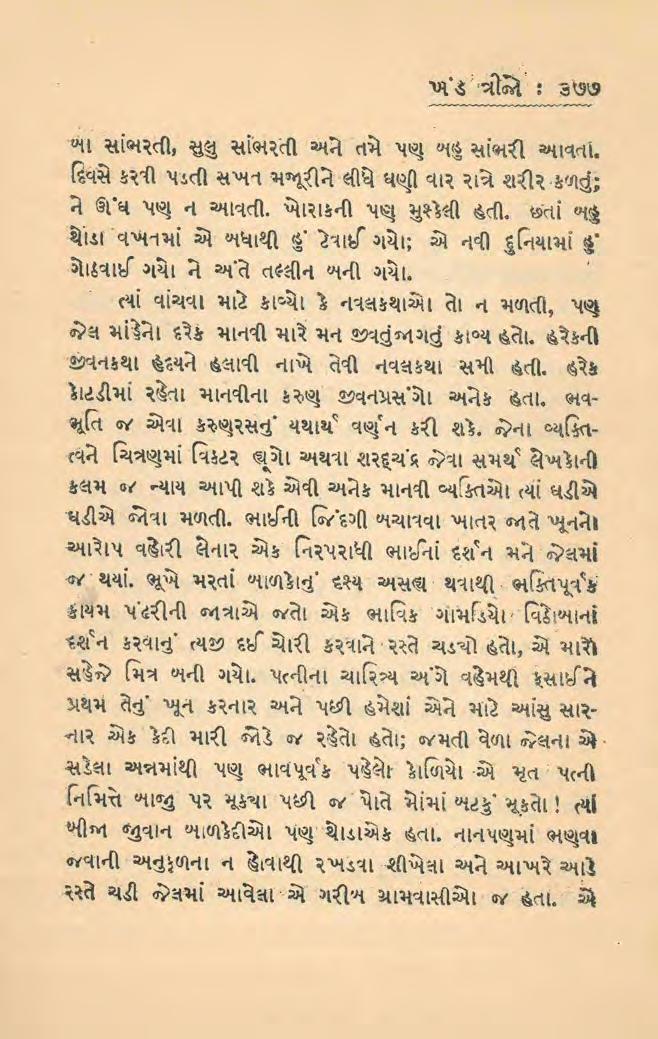 ખંડ ત્રીજો : ૩૭૭
બા સાંભરતી, સુલુ સાંભરતી અને તમે પણ બહુ સાંભરી આવતાં.
દિવસે કરવી પડતી સખત મજૂરીને લીધે ઘણી વાર રાત્રે શરીર કળતું;
ને ઊંઘ પણ ન આવતી. ખોરાકની પણ મુશ્કેલી હતી. છતાં બહુ
થોડા વખતમાં એ બધાથી હું ટેવાઈ ગયો; એ નવી દુનિયામાં હું
ગોઠવાઈ ગયો ને અંતે તલ્લીન બની ગયો.
ત્યાં વાંચવા માટે કાવ્યો કે નવલકથાઓ તો ન મળતી, પણ
જેલ માંહેનો દરેક માનવી મારે મન જીવતુંજાગતું કાવ્ય હતો. હરેકની
જીવનકથા હૃદયને હલાવી નાખે તેવી નવલકથા સમી હતી. હરેક
કોટડીમાં રહેતા માનવીના કરુણ જીવનપ્રસંગો અનેક હતા. ભવ-
ભૂતિ જ એવા કરુણરસનું યથાર્થ વર્ણન કરી શકે. જેના વ્યક્તિ-
ત્વને ચિત્રણમાં વિકટર હ્યૂગો અથવા શરદ્ચંદ્ર જેવા સમર્થ લેખકોની
કલમ જ ન્યાય આપી શકે એવી અનેક માનવી વ્યક્તિઓ ત્યાં ઘડીએ
ઘડીએ જોવા મળતી. ભાઈની જિંદગી બચાવવા ખાતર જાતે ખૂનનો
આરોપ વહોરી લેનાર એક નિરપરાધી ભાઈનાં દર્શન મને જેલમાં
જ થયાં. ભૂખે મરતાં બાળકોનું દૃશ્ય અસહ્ય થવાથી ભક્તિપૂર્વક
કાયમ પંઢરીની જાત્રાએ જતો એક ભાવિક ગામડિયો વિઠોબાનાં
દર્શન કરવાનું ત્યજી દઈ ચોરી કરવાને રસ્તે ચડ્યો હતો, એ મારો
સહેજે મિત્ર બની ગયો. પત્નીના ચારિત્ર્ય અંગે વહેમથી ફસાઈને
પ્રથમ તેનું ખૂન કરનાર અને પછી હમેશાં એને માટે આંસુ સાર-
નાર એક કેદી મારી જોડે જ રહેતો હતો; જમતી વેળા જેલના એ
સડેલા અન્નમાંથી પણ ભાવપૂર્વક પહેલો કોળિયો એ મૃત પત્ની
નિમિત્તે બાજુ પર મૂક્યા પછી જ પોતે મોંમાં બટકું મૂકતો ! ત્યાં
બીજા જુવાન બાળકેદીઓ પણ થોડાએક હતા. નાનપણમાં ભણવા
જવાની અનુકૂળતા ન હોવાથી રખડવા શીખેલા અને આખરે આડે
રસ્તે ચડી જેલમાં આવેલા એ ગરીબ ગ્રામવાસીઓ જ હતા. એ